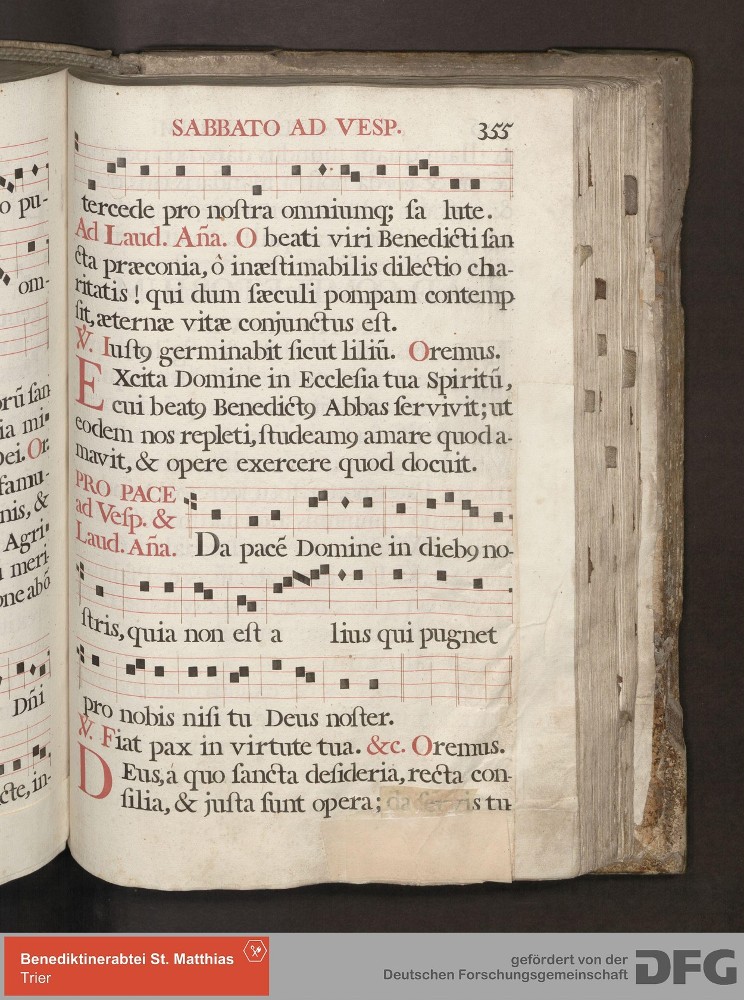 SABBATO AD VESP. 355
tercede pro noſtra omniumq; ſa lute.
Ad Laud. Aña. O beati viri Benedicti ſan
cta præconia, ò inæſtimabilis dilectio cha-
ritatis! qui dum ſæculi pompam contemp
ſit, æternæ vitæ conjunctus eſt.
℣. Iuſtꝯ germinabit ſicut liliū. Oremus.
EXcita Domine in Eccleſia tua Spiritū,
cui beatꝯ Benedictꝯ Abbas ſervivit; ut
eodem nos repleti, ſtudeamꝯ amare quod a-
mavit, & opere exercere quod docuit.
PRO PACE
ad Veſp. &
Laud. Aña. Da pacē Domine in diebꝯ no-
ſtris, quia non eſt a lius qui pugnet
pro nobis niſi tu Deus noſter.
℣. Fiat pax in virtute tua. &c. Oremus.
DEus, á quo ſancta deſideria, recta con-
ſilia, & juſta ſunt opera; da ſervis tu
o pu-
om-
orū ſan
ia mi-
pei. Or.
famu-
nis, &
Agri-
meri
one abō
Dñi
cte, in-
Benediktinerabtei St. Matthias
Trier
gefördert von der
Deutschen Forschungsgemeinschaft
DFG